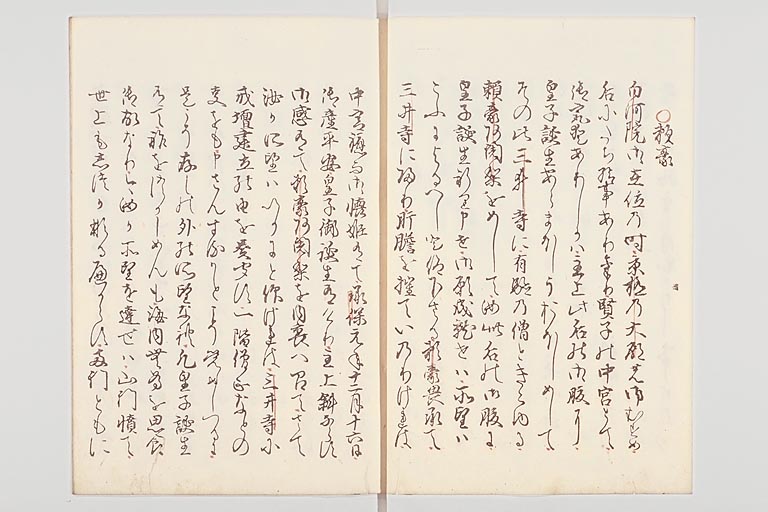 ○頼豪
白河院御在位乃時京極乃大殿乃御むすめ
后にたゝせ給事あり賢子の中宮とて
御寵愛ありしかハ主上此后の御腹に
皇子誕生あらまほしうおほしめして
その比三井寺に有験乃僧ときこゆる
頼豪阿闍梨をめして汝此后の御腹に
皇子誕生祈り申せ御願成就せハ所望ハ
こふによるへしと仰下さる頼豪畏承て
三井寺に帰り肝膽を摧てい乃りけれは
中宮御懐姫有て承保元年十二月十六日
御産平安皇子御誕生有けり主上斜ならす
御感有て頼豪阿闍梨を内裏へ召てさて
汝か所望ハいかにと仰けれは三井寺に
戒壇建立の由を奏聞す一階僧正なとの
事をも申さんするかとこそ覚しつるに
是こそ存の外の所望なれ凡皇子誕生
有て祚をつかしめんも海内無為を思食
御故なり今汝か所望を達せハ山門憤て
世上も なるへからす両門ともに